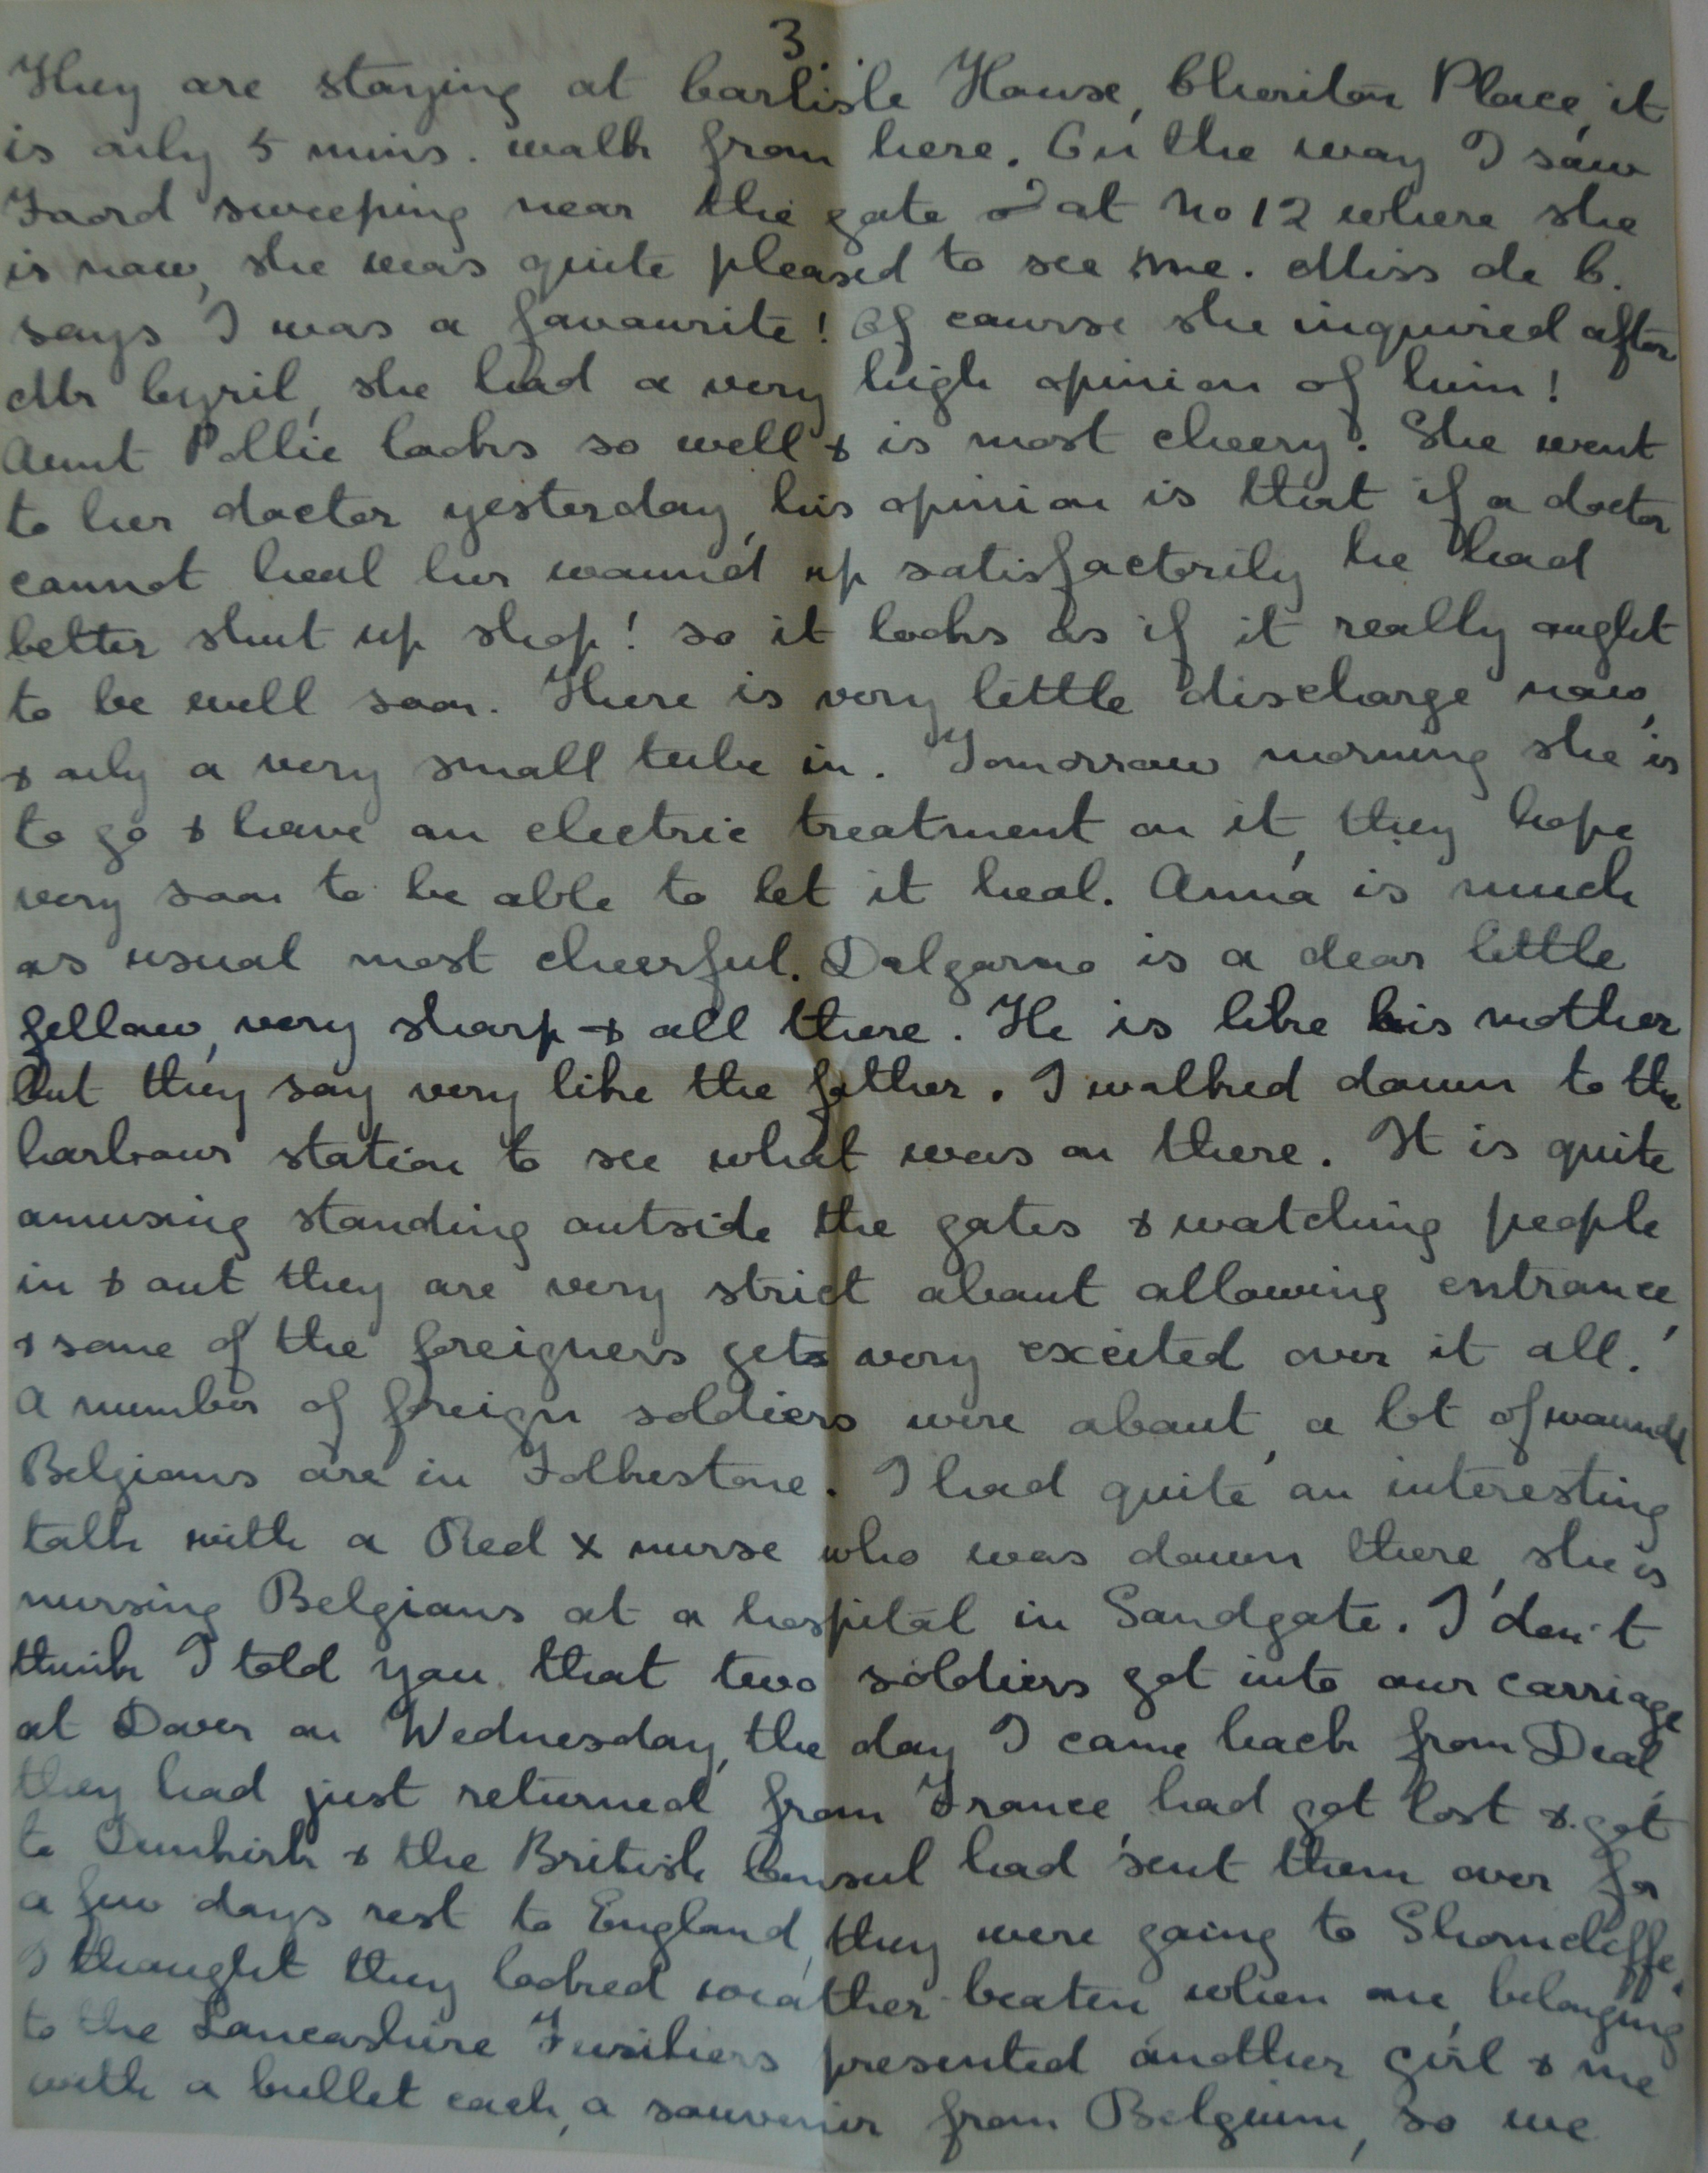 3.
They are staying at Carlisle House, Cheriton Place, it
is only 5 mins. walk from here. On the way I saw
Foord sweeping near the gate at No 12 where she
is now, she was quite pleased to see me. Miss de C.
says I was a favourite! Of course she inquired after
Mr Cyril, she had a very high opinion of him!
Aunt Pollie looks so well & is most cheery. She went
to her doctor yesterday, his opinion is that if a doctor
cannot heal her wound up satisfactorily he had
better shut up shop! so it looks as if it really ought
to be well soon. There is very little discharge now,
& only a very small tube in. Tomorrow morning she is
to go & have an electric treatment on it, they hope
very soon to be able to let it heal. Anna is much
as usual most cheerful. Dalgarno is a dear little
fellow, very sharp & all there. He is like his mother
but they say very like the father. I walked down to the
harbour station to see what was on there. It is quite
amusing standing outside the gates & watching people
in & out they are very strict about allowing entrance,
& some of the foreigners gets very excited over it all.
A number of foreign soldiers were about, a lot of wounded
Belgians are in Folkestone. I had quite an interesting
talk with a Red x nurse who was down there, she is
nursing Belgians at a hospital in Sandgate. I don't
think I told you that two soldiers got into our carriage
at Dover on Wednesday, the day I came back from Deal,
they had just returned from France, had got lost & got
to Dunkirk & the British Consul had sent them over for
a few days rest to England, they were going to Shorncliffe.
I thought they looked weather-beaten when one, belonging
to the Lancashire Fusiliers presented another girl & me
with a bullet each, a souvenir from Belgium, so we